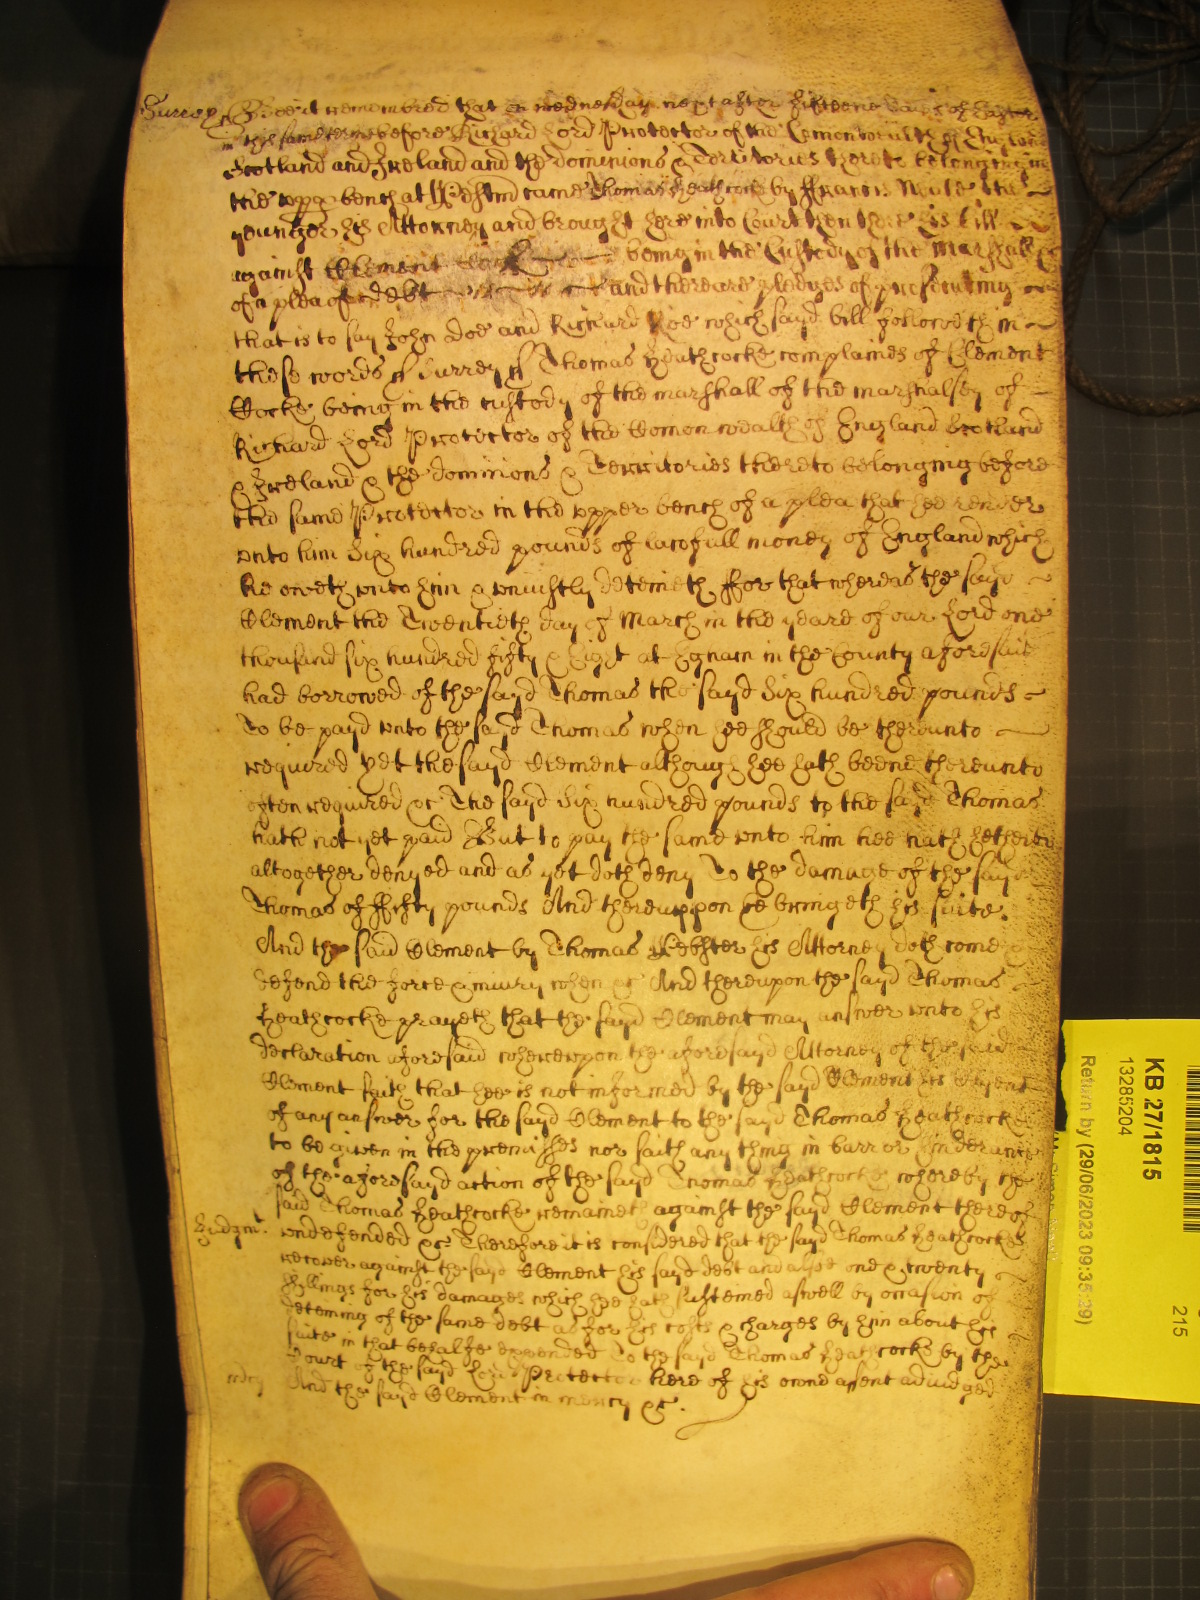 Surrey ss Bee it remembred that on wednesday next after fifteene dayes of Easter
in this same terme before Richard Lord Protector of the Comonwealth of England
Scotland and Ireland and the dominions & Territories thereto belonging in
the upp bench at Westmr came Thomas Heathcocke by the
younger his Attorney and brought here into Court then there his bill
against Clement being in the Custody of the Marshall
of a plea of debt and there are pledges of prosecuting
that is to say John Doe and Richard Roe which sayd bill followeth in
these words ss Surrey ss Thomas Heathcocke complaines of Clement
Cocke being in the custody of the marshall of the marshalsey of
Richard Lord Protector of the Comonwealth of England Scotland
& Ireland & the dominions & Territories thereto belonging before
the same Protector in the upper bench of a plea that hee render
unto him Six hundred pounds of lawfull money of England which
he oweth unto him & uniustly deteineth ffor that whereas the sayd
Clement the Twentieth day of March in the yeare of our Lord one
thousand six hundred fifty & Eight at Egham in the County aforesaid
had borrowed of the sayd Thomas the sayd Six hundred pounds
To be payd unto the sayd Thomas when hee should be thereunto
required Yet the sayd Clement although hee hath beene thereunto
often required &c The sayd Six hundred pounds to the sayd Thomas
hath not yet paid But to pay the same unto him hee hath hetherto
altogether denyed and as yet doth deny To the damage of the sayd
Thomas of ffifty pounds And thereuppon he bringeth his suite.
And the said Clement by Thomas Webster his Attorney doth come &
defend the force & iniury when &c And thereupon the sayd Thomas
Heathcocke prayeth that the sayd Clement may answer unto his
declaration aforesaid whereupon the aforesayd Attorney of the said
Clement saith that hee is not informed by the sayd Clement his Clyent
of any answer for the sayd Clement to the sayd Thomas Heathcocke
to be given in the premisses nor saith any thing in barr or hinderance
of the aforesayd action of the sayd Thomas Heathcocke whereby the
said Thomas Heathcocke remaineth against the sayd Clement thereof
Iudgmt. undefended &c Therefore it is considered that the sayd Thomas Heathcocke
recover against the sayd Clement his sayd debt and alsoe one & twenty
shillings for his damages which hee hath susteined aswell by occasion of
deteining of the same debt as for his costs & charges by him about his
suite in that behalfe expended To the sayd Thomas Heathcocke by the
Court of the sayd Lord Protector here of his owne assent adiudged
mdcy And the sayd Clement in mercy &c.
KB 27/1815
13285204
Return by (29/06/2023 09:35:29)
215